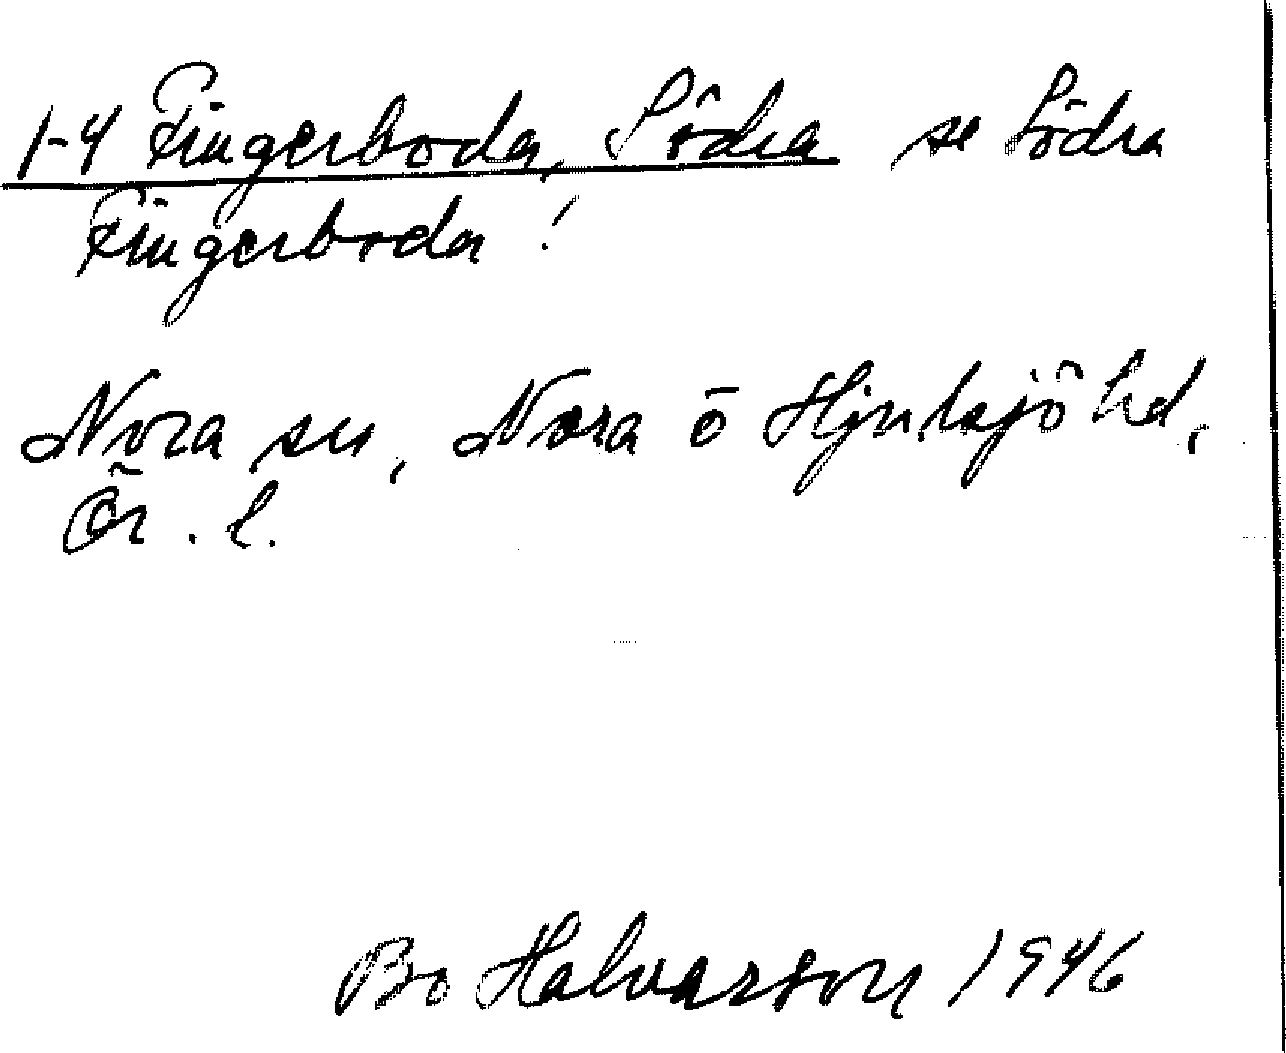 1-4 Fingerboda, Södra se Södra
Fingerboda!
Nora sn, Nora o Hjulsjö hd,
Ör. l.
Bo Halvarson 1946